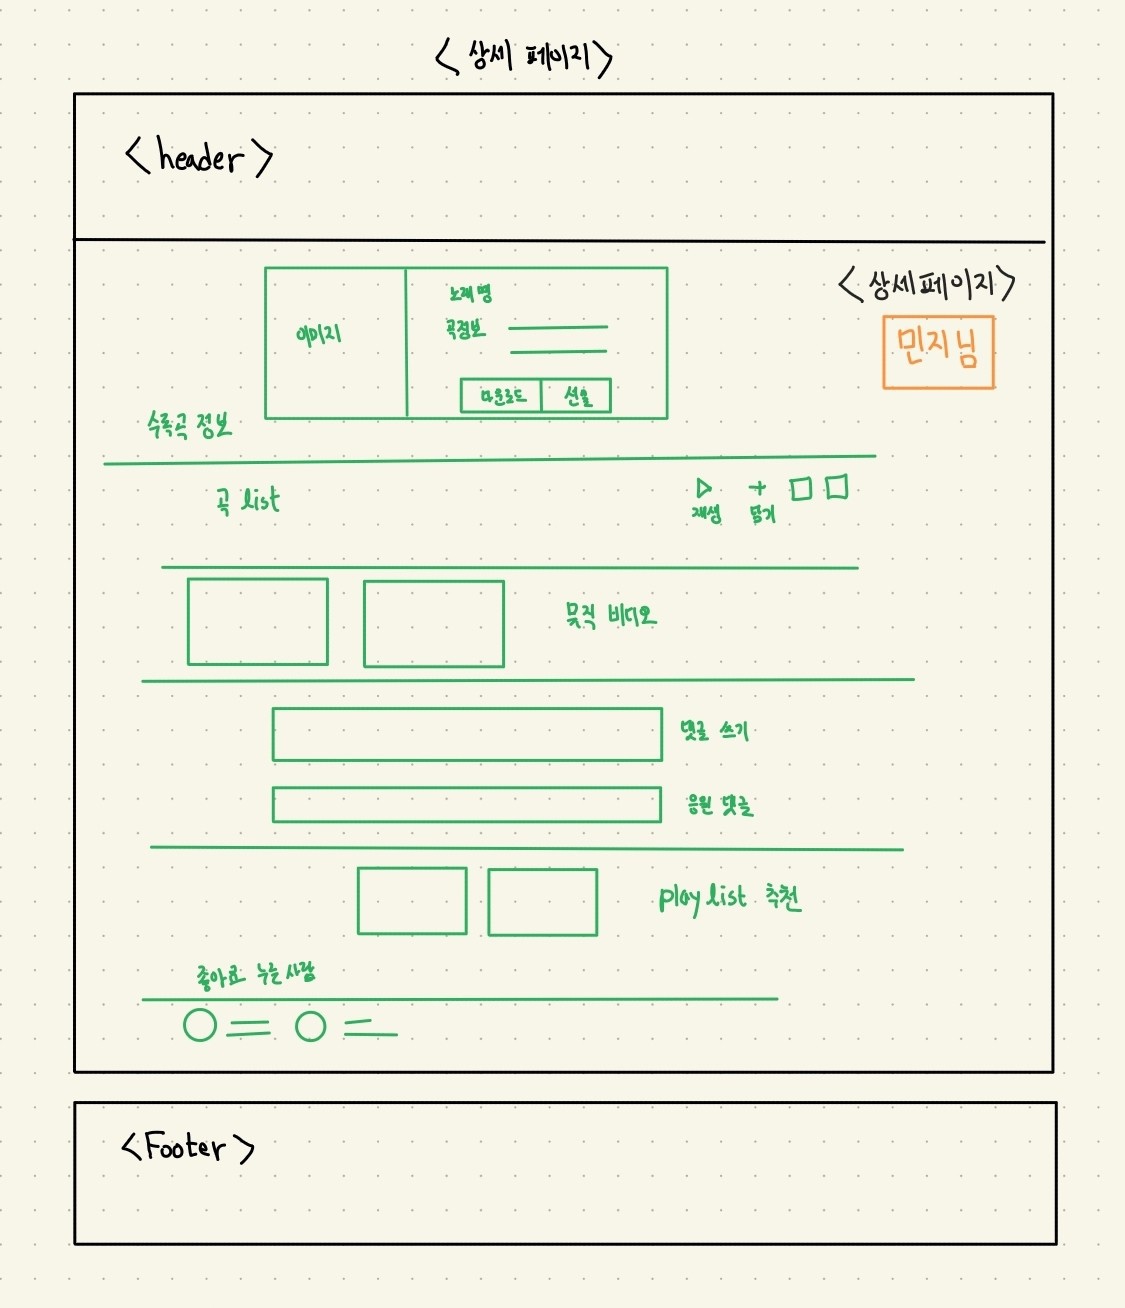 <상세 페이지>
<header>
<상세페이지>
민지님
이미지
노래명
곡정보
다운로드
선물
수록곡 정보
곡 list
재생
담기
뮤직 비디오
댓글 쓰기
응원 댓글
play list 추천
좋아요 누른 사람
<Footer>